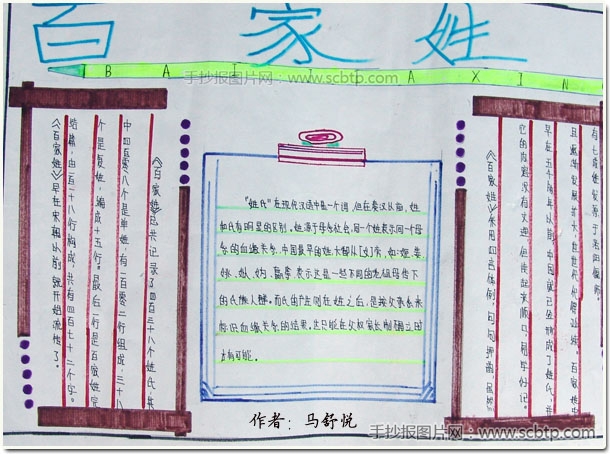 百家姓
B A I A X I N
手抄报图片网：www.scbtp.com
《百家姓》已共记录了四百三十八个姓氏，其
中四百零八个是单姓有一百零二行组成，三十八
个是复姓，编成十五行。最后一行是百家姓完
结篇，由一百十八行构成，共有四百七十二个字。
《百家姓》早在宋朝以前就开始流传了。
"姓氏"在现代汉语中是一个词，但在秦汉以前，姓
和氏有明显的区别。姓源于母系社会，同一个姓表示同一个母
系的血缘关系。中国最早的姓，大都从[女]旁，如：姬、姜、
姒、姚、妫、嬴等，表示这是一些不同的老祖母传下
的氏族人群。而氏的产生则在姓之后，是按父系来
标识血缘关系的结果，这只能在父权家长制确立时
才有可能。
早在五千多年以前，中国就已经形成了姓氏，
它的发源没有文理，但读起来顺口，易学好记。
《百家姓》采用四言体例，句句押韵，虽然
作者：马舒悦
手抄报图片网：www.scbtp.com